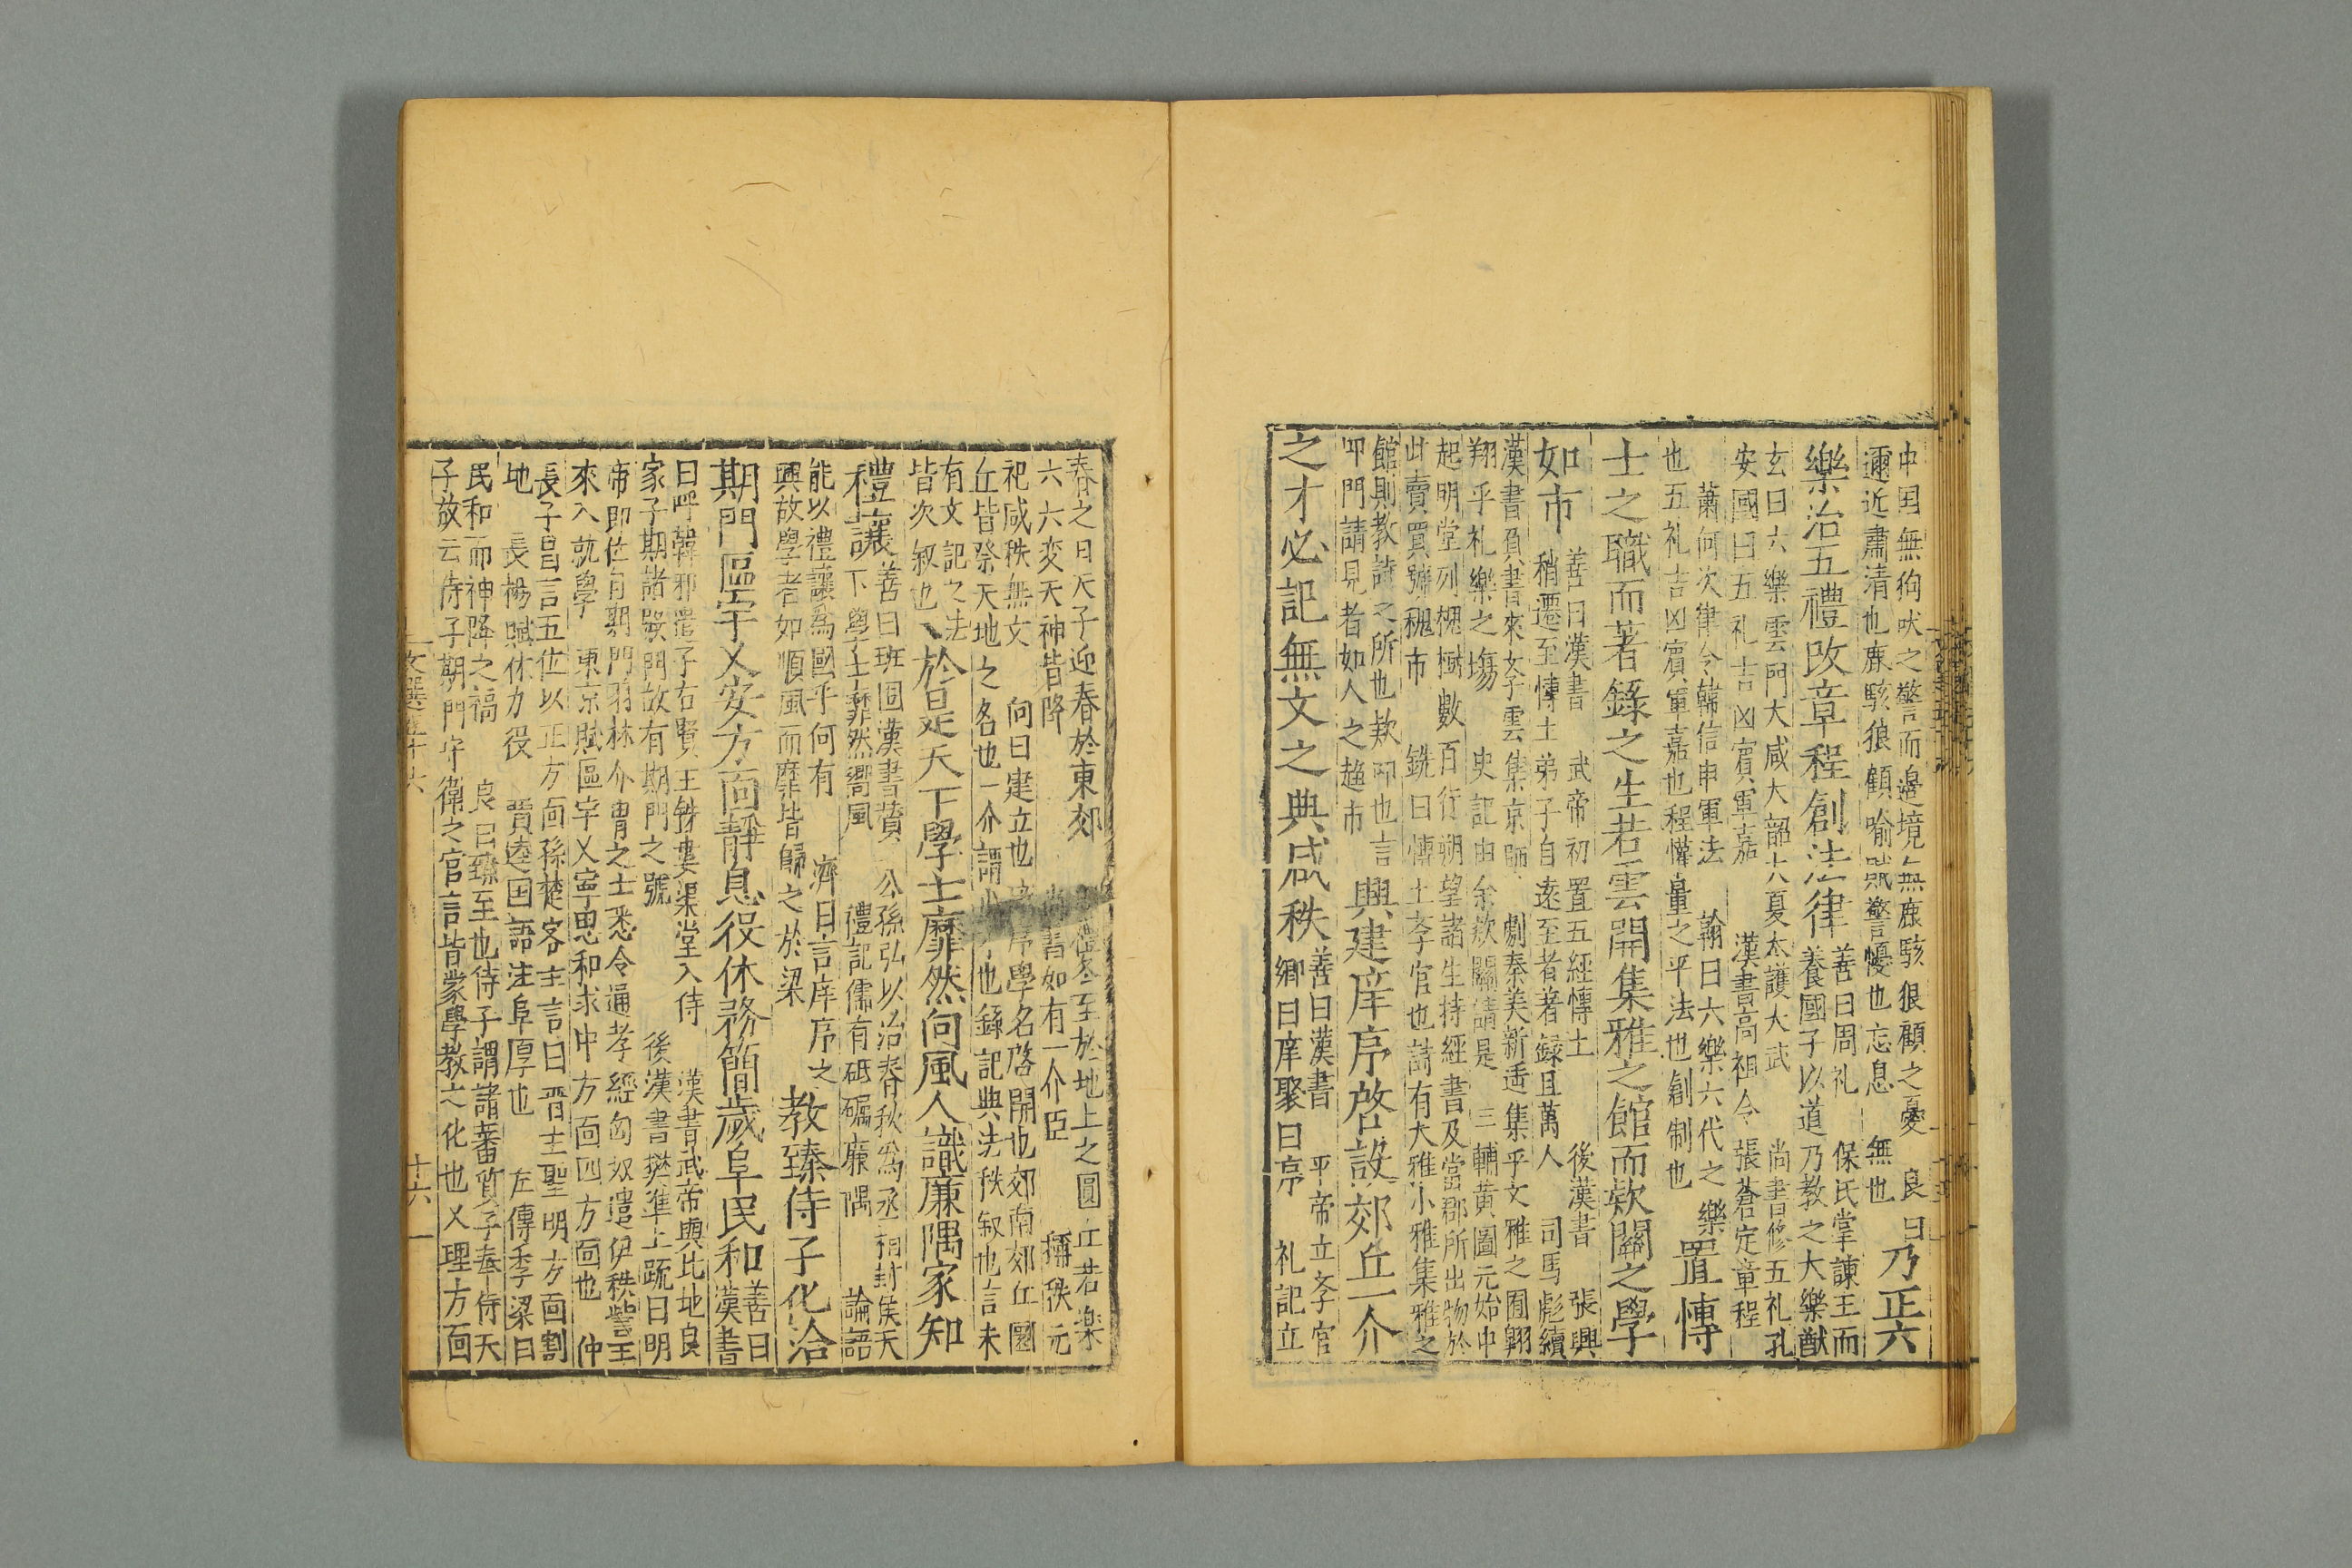 中国無狗吠之警而邉境無鹿駭狼顧之憂 良曰
邇近肅清也鹿駭狼顧喻賊警憂也忘息 無也
乃正六
樂治五禮改章程創法律
善曰周礼 保氏掌諫王而
養國子以道乃教之大樂猷
玄曰六樂雲門大咸大韶大夏大護大武 尚書修五礼孔
安國曰五礼吉凶賓軍嘉 漢書高祖令 張蒼定章程
蕭何次律令韓信申軍法 翰曰六樂六代之樂
也五礼吉凶賓軍嘉也程權量之平法也創制也
置慱
士之職而著錄之生若雲開集雅之館而欵關之學
如市
善曰漢書 武帝初 置五經慱士 後漢書 張興
稍遷至慱士弟子自遠至者著録且萬人 司馬彪續
漢書負書來 子雲集京師 劇秦美新遥集乎文雅之囿翱
翔乎礼樂之塲 史記由余欵關請見 三輔黄圖元始中
起明堂列槐樹數百行朔望諸生持經書及當郡所出物於
此賣買號槐市 銑曰慱士孝官也詩有大雅小雅集雅之
館則教詩之所也欵叩也言
叩門請見者如人之趍市
興建庠序啓設郊丘一介
之才必記無文之典咸秩
善曰漢書 平帝立孝官
鄉曰庠聚曰序 礼記立
春之日天子迎春於東郊 禮冬至於地上之圓丘若樂
六六変天神皆降 尚書如有一介臣 稱秩元
祀咸秩無文 向曰建立也庠序學名啓開也郊南郊丘圜
丘皆祭天地之名也一介謂 也錄記典法秩叙也言未
有文記之法
皆次叙也
於是天下學士靡然向風人識廉隅家知
禮讓
善曰班固漢書贊 公孫弘以治春秋為丞相封侯天
下學士靡然嚮風 禮記儒有砥礪廉隅 論語
能以禮讓為國乎何有 濟曰言庠序之
興故學者如順風而靡皆歸之於梁
教臻侍子化洽
期門區宇乂安方面靜息役休務簡歲阜民和
善曰
漢書
曰呼韓邪遣子右賢王銖婁渠堂入侍 漢書武帝與北地良
家子期諸殿門故有期門之號 後漢書樊準上疏曰明
帝即位自期門羽林介胄之士悉令通孝經匈奴遣伊秩訾王
來入就學 東京賦區宇乂寧思和求中 方面四方面也 仲
長子昌言五位以正方面 孫楚客主言曰晋主聖明方面割
地 長楊賦休力役 賈逵囯語注阜厚也 左傳季梁曰
民和而神降之福 良曰臻至也侍子謂諸蕃質子奉侍天
子故云侍子期門守衛之官言皆蒙學教之化也乂理方面
文選卷十六
十六